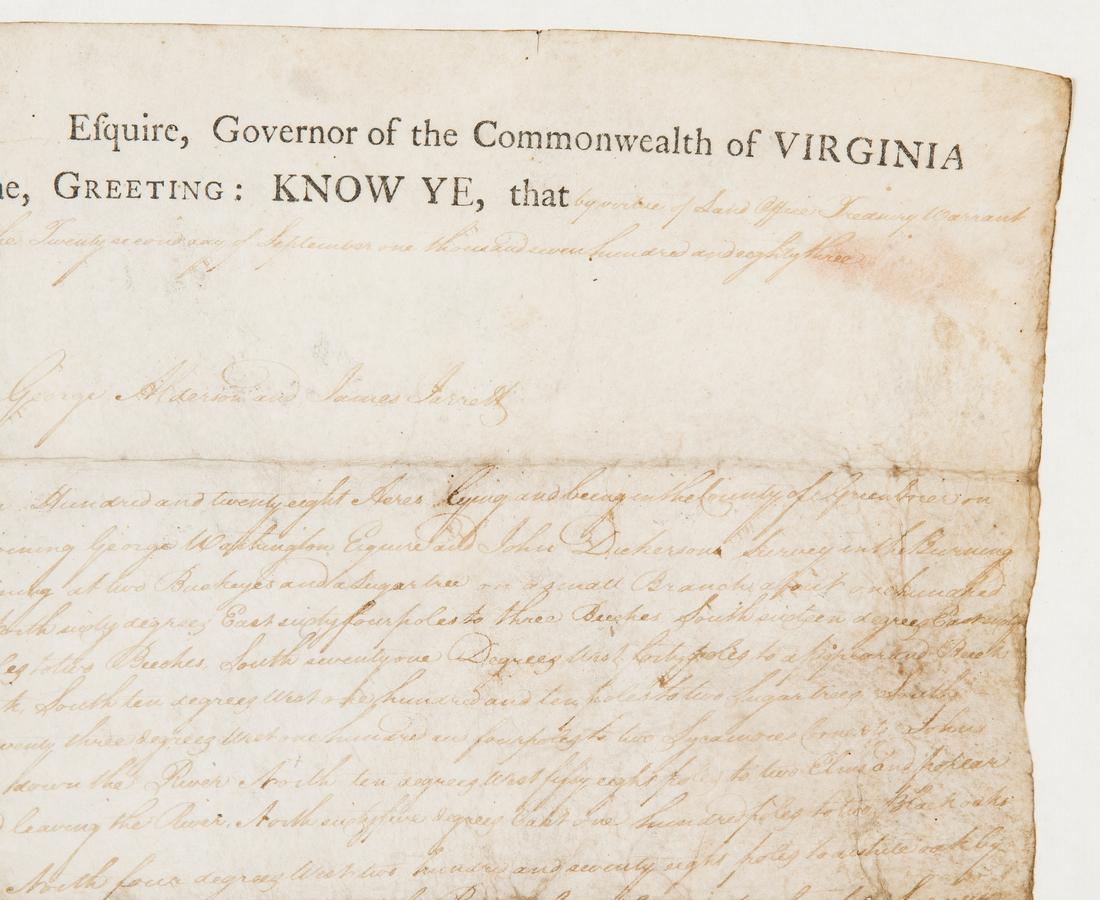 Eſquire, Governor of the Commonwealth of VIRGINIA
e, GREETING: KNOW YE, that by virtue of Land Office Treasury Warrant
the Twenty second day of September one thousand seven hundred and eighty three
George Alderson and James Jarrett
Hundred and twenty eight Acres lying and being in the County of Greenbrier on
oining George Washington Esquire and John Dickersons Survey in the Burning
ning at two Buckeyes and a Sugar tree on a small Branch about one hundred
orth sixty degrees East sixty four poles to three Beeches South sixteen degrees East
les to two Beeches, South seventy one Degrees West forty poles to a and Beech
South ten degrees West one hundred and ten poles to two Sugar trees, South
wenty three degrees West one hundred an four poles to two Sycamores Corner to Johns
down the River North ten degrees West fifty eight poles to two Elms and poplar
leaving the River North sixty five degrees East one hundred poles to two Black oaks
North four degrees West two hundred and seventy eight poles to a white oak by